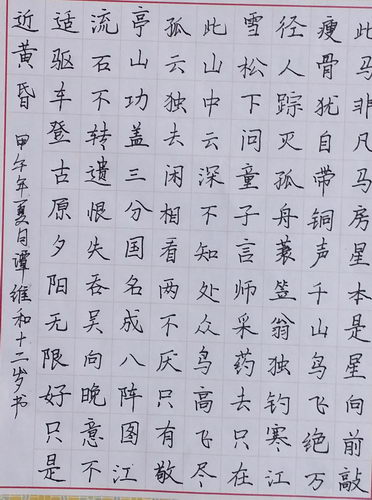 此马非凡马房星本是星向前敲
瘦骨犹自带铜声千山鸟飞绝万
径人踪灭孤舟蓑笠翁独钓寒江
雪松下问童子言师采药去只在
此山中云深不知处众鸟高飞尽
孤云独去闲相看两不厌只有敬
亭山功盖三分国名成八阵图江
流石不转遗恨失吞吴向晚意不
适驱车登古原夕阳无限好只是
近黄昏 甲午年夏月谭维和十二岁书